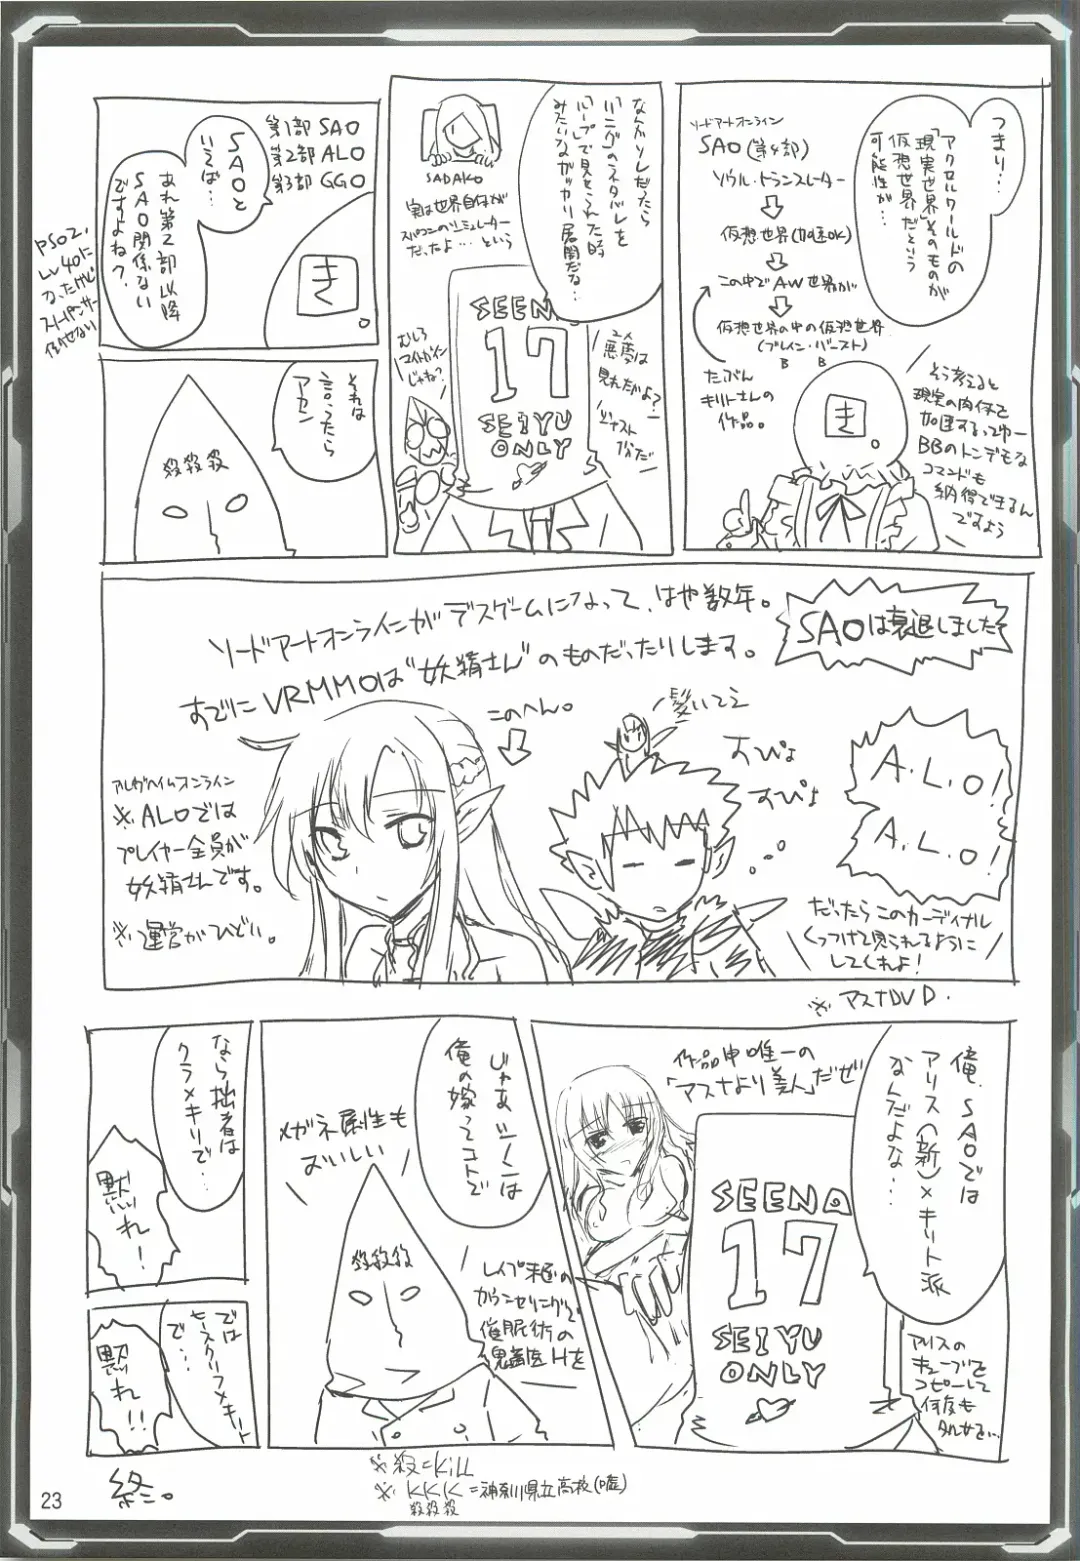 つまり…
アクセルワールドの
「現実世界」そのものが
仮想世界だという
可能性が…
ソードアートオンライン
SAO(第4部)
ソウル・トランスレーター
仮想世界(加速OK)
この中でAW世界が
仮想世界の中の仮想世界
(ブレイン・バースト)
B B
たぶん
キリトさんの
作品。
き。
そう考えると
現実の肉体を
加速するってゆー
BBのトンデモな
コマンドも
納得できるん
ですよう
なんかソレだったら
「リング」のネタバレを
「ループ」で見せられた時
みたいなガッカリ展開だな…
SADAKO
実は世界自体が
スパコンのシミュレーター
だったよ…という
SEENA
17
SEIYU
ONLY
悪夢は
見れたかよ?
むしろ
じゃね?
第1部 SAO
第2部 ALO
第3部 GGO
SAOと
いえば…
あれ第2部以降
SAO関係ない
ですよね?
き。
PSO2、
Lv40に
なったけど
それは
言ったら
アカン
殺殺殺
SAOは衰退しました
ソードアートオンラインがデスゲームになって、はや数年。
すでにVRMMOは“妖精さん”のものだったりします。
このへん。
髪いてえ
すぴょ
すぴょ
A.L.O!
A.L.O!
だったらこのカーディナル
くっつけて見られるように
してくれよ!
アルヴヘイムオンライン
※ALOでは
プレイヤー全員が
妖精さんです。
※運営がひどい。
※アスナDVD.
俺、SAOでは
アリス(新)×キリト派
なんだよな…
作品中唯一の
「アスナより美人」だぜ
SEENA
17
SEIYU
ONLY
アリスの
キューブを
コピーして
何度も
じゃあシノンは
俺の嫁ってコトで
メガネ属性も
おいしい
殺殺殺
レイプ未遂の
カウンセリングで
催眠術の
鬼畜医Hを
なら拙者は
クラ×キリで…
黙れ!
では
モースクリフ×キート
で…
黙れ!!
※殺=Kill
※KKK=神奈川県立高校(嘘)
殺殺殺
終。
23